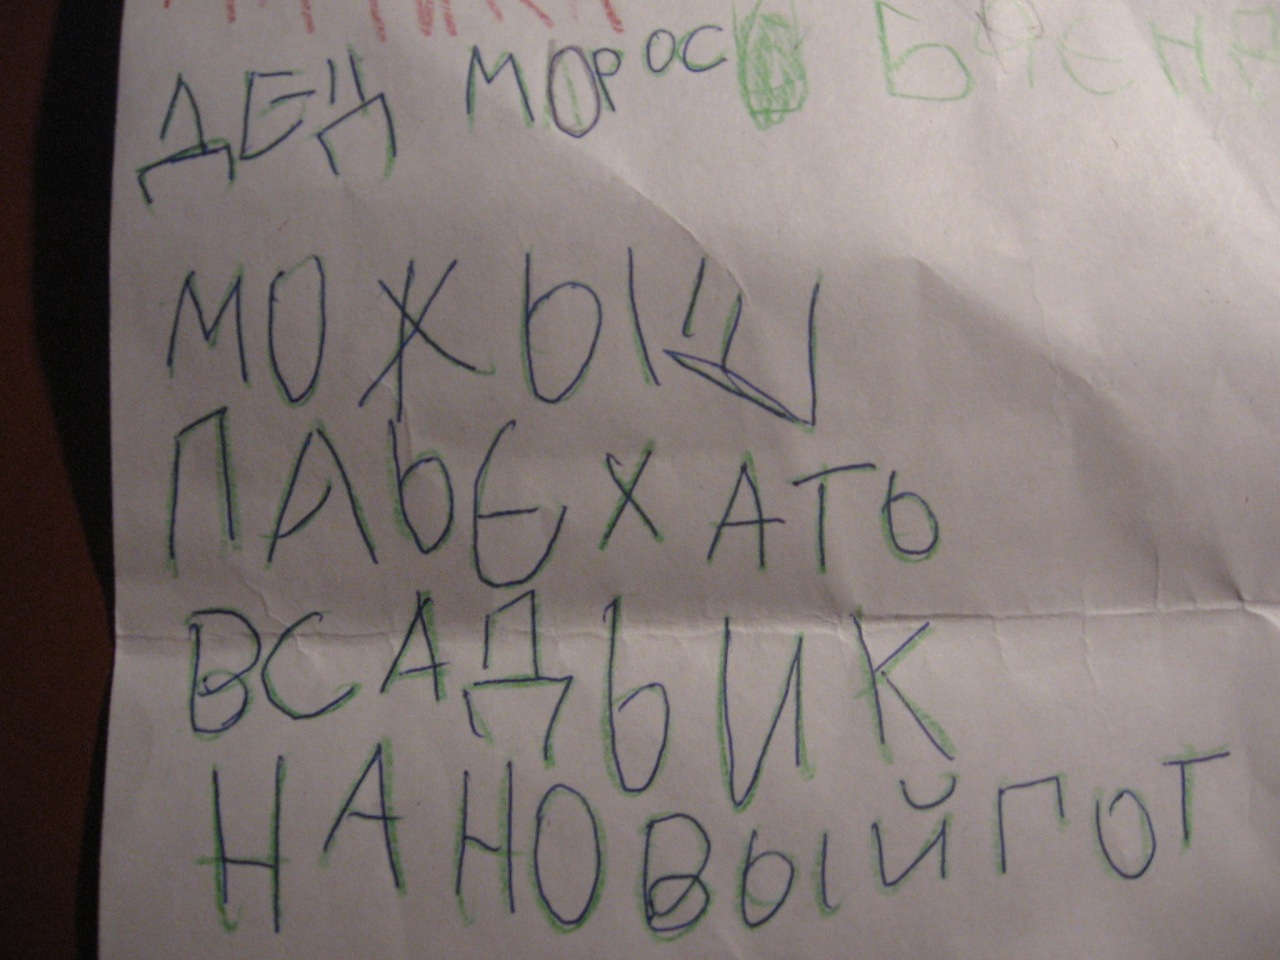 ДЕД МОРОС
МОЖЫШ
ПАЬЕХАТЬ
ВСАДЬИК
НА НОВЫЙ ГОТ